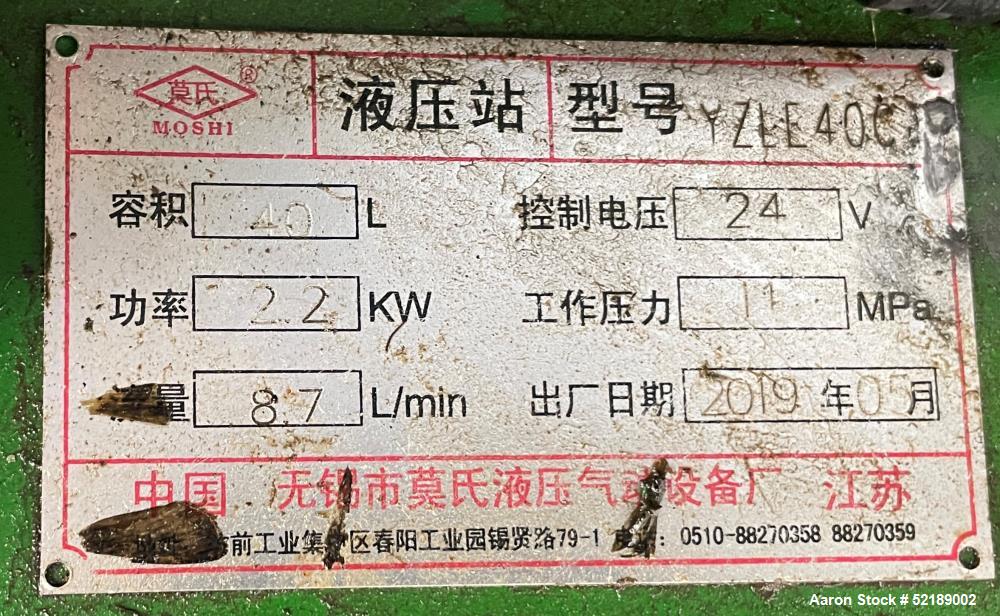 莫氏 ®
MOSHI
液压站 型号 YZLE40C
容积 40 L 控制电压 24 V
功率 2.2 KW 工作压力 11 MPa
量 8.7 L/min 出厂日期 2019 年 05 月
中国 无锡市莫氏液压气动设备厂 江苏
前工业集 区春阳工业园锡贤路79-1 : 0510-88270358 88270359
Aaron Stock # 52189002